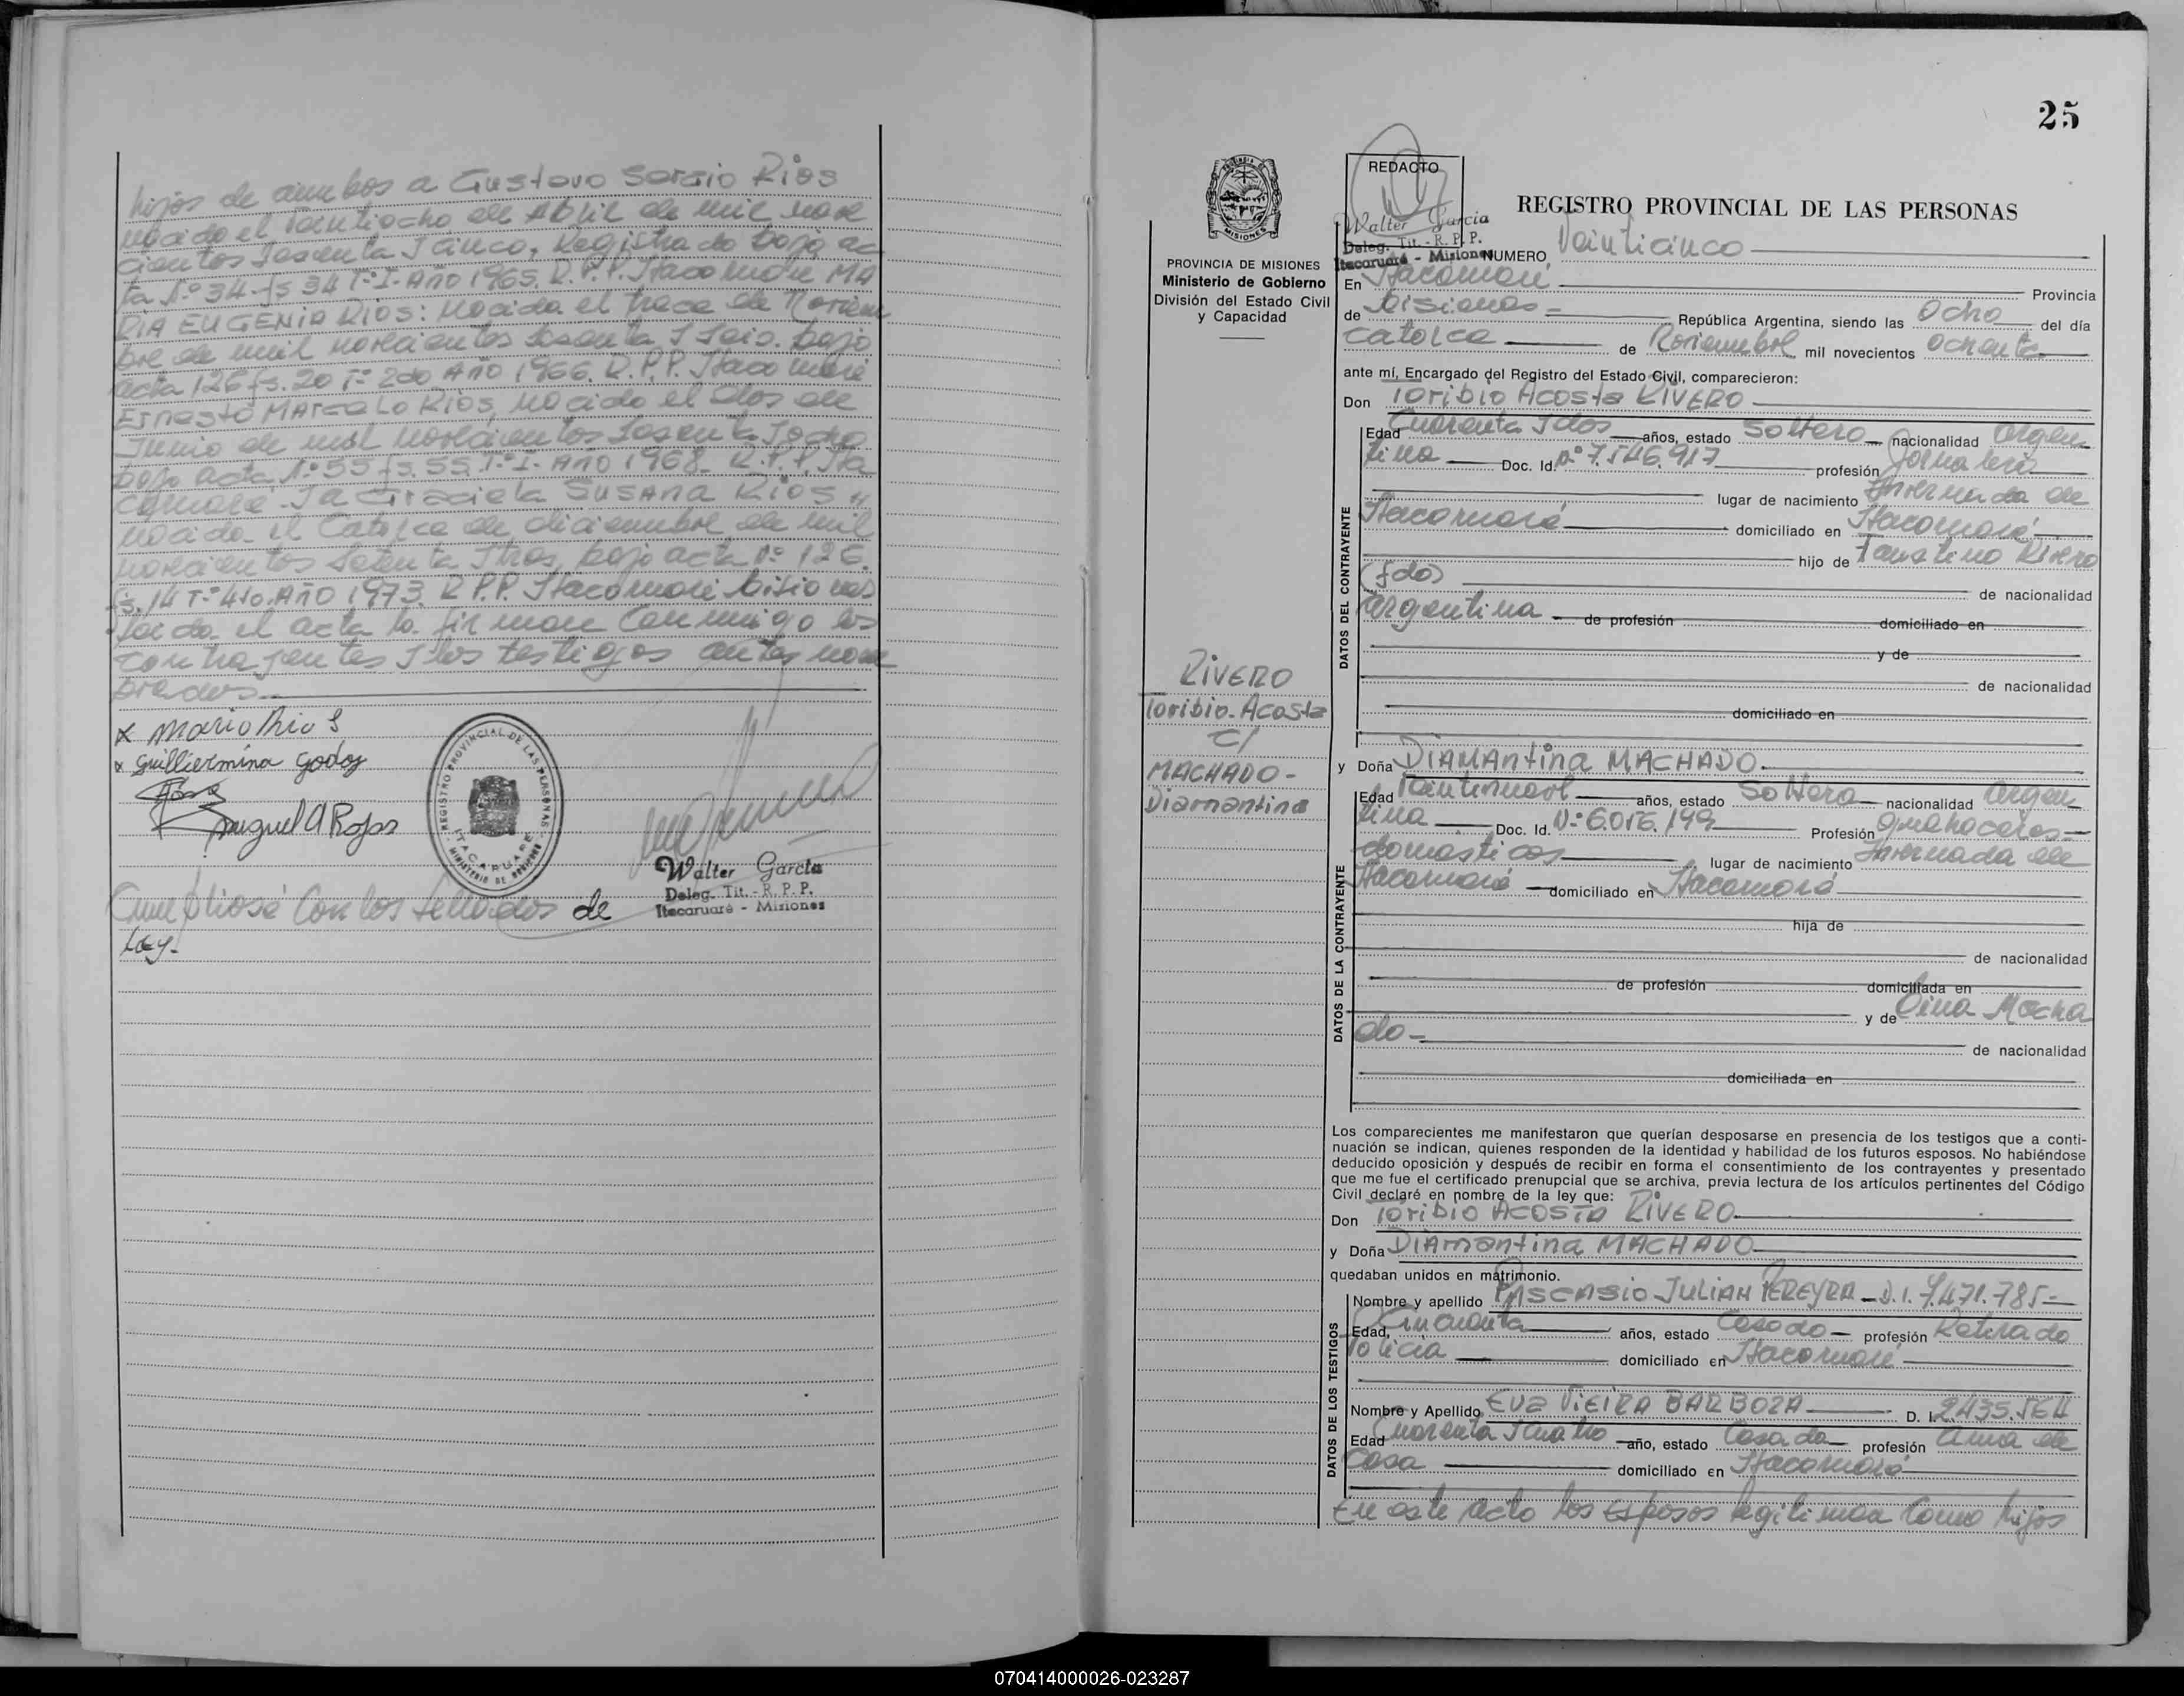 hijos de ambos a Gustavo Sergio Rios
nacido el veintiocho de Abril de mil nove
cientos sesenta y cinco, Registrado bajo ac
ta Nº 34 fs 34 Tº I. Año 1965. R.P.P. Itacaruaré MA
RIA EUGENIA RIOS: nacida el trece de Noviem
bre de mil novecientos sesenta y seis. bajo
acta 126 fs. 20 Tº 2do Año 1966. R.P.P. Itacaruaré
Ernesto MArceLo Rios, nacido el dos de
Junio de mil novecientos sesenta y ocho
bajo acta Nº 55 fs. 55 Tº I. Año 1968. R.P.P. Ita
caruaré. y a Graciela SUSANA Rios
nacida el Catorce de diciembre de mil
novecientos setenta y tres, bajo acta Nº 126.
fs. 14 Tº 4to. Año 1973. R.P.P. Itacaruaré Misiones
leida el acta la firman conmigo los
contrayentes y los testigos antes nom
brados.
x Mario Rios
x Guillermina Godoy
Miguel A Rojas
REGISTRO PROVINCIAL DE LAS PERSONAS
ITACARUARE
MINISTERIO DE GOBIERNO
Walter García
Deleg. Tit. - R. P. P.
Itacaruaré - Misiones
Cumpliose con los sellados de
Ley.
25
PROVINCIA DE MISIONES
Ministerio de Gobierno
División del Estado Civil
y Capacidad
REDACTO
Walter García
Deleg. Tit. - R. P. P.
Itacaruaré - Misiones
REGISTRO PROVINCIAL DE LAS PERSONAS
NUMERO Veinticinco
En Itacaruaré Provincia
de Misiones República Argentina, siendo las Ocho del día
catorce de Noviembre mil novecientos ochenta
ante mí, Encargado del Registro del Estado Civil, comparecieron:
Don Toribio Acosta RIVERO
DATOS DEL CONTRAYENTE
Edad Cuarenta y dos años, estado Soltero nacionalidad Argen
tina Doc. Id. nº 7.546.917 profesión Jornalero
lugar de nacimiento Invernada de
Itacaruaré domiciliado en Itacaruaré
hijo de Faustino Rivero
(fdo) de nacionalidad
argentina de profesión domiciliado en
y de
de nacionalidad
domiciliado en
RIVERO
Toribio Acosta
C/
MACHADO-
Diamantina
y Doña DIAMAntina MACHADO
DATOS DE LA CONTRAYENTE
Edad Veintinueve años, estado Soltera nacionalidad Argen
tina Doc. Id. Nº 6.056.199 Profesión quehaceres
domésticos lugar de nacimiento Invernada de
Itacaruaré domiciliado en Itacaruaré
hija de
de nacionalidad
de profesión domiciliada en
y de Macha
do- de nacionalidad
domiciliada en
Los comparecientes me manifestaron que querían desposarse en presencia de los testigos que a conti-
nuación se indican, quienes responden de la identidad y habilidad de los futuros esposos. No habiéndose
deducido oposición y después de recibir en forma el consentimiento de los contrayentes y presentado
que me fue el certificado prenupcial que se archiva, previa lectura de los artículos pertinentes del Código
Civil declaré en nombre de la ley que:
Don Toribio ACOSTA RIVERO
y Doña DIAmantina MACHADO
quedaban unidos en matrimonio.
DATOS DE LOS TESTIGOS
Nombre y apellido PASCASIO JULIAN PEREYRA - D.I. 7.471.785-
Edad, Cincuenta años, estado Casado profesión Retirado
Policia domiciliado en Itacaruaré
Nombre y Apellido EVA VIEIRA BARBOZA D. I. 2435.564
Edad Cuarenta y cuatro año, estado Casada profesión Ama de
Casa domiciliado en Itacaruaré
En este acto los Esposos legitiman Como hijos
070414000026-023287